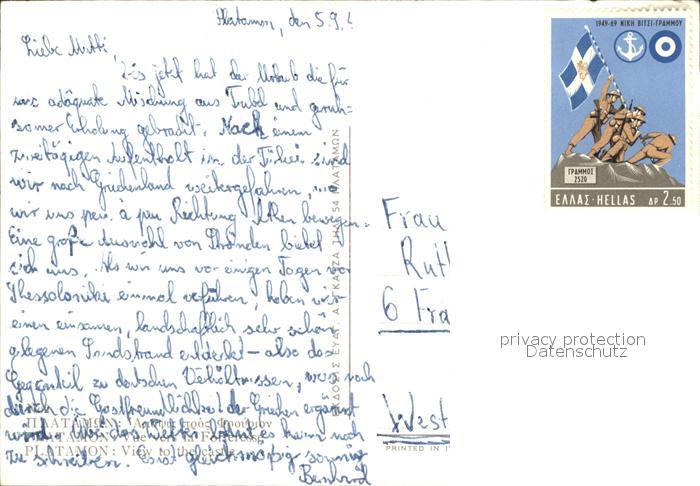 Platamon, den 5.9.!
Liebe Mutti,
Bis jetzt hat der Urlaub die für
uns adäquate Mischung aus Trubel und geruh=
samer Erholung gebracht. Nach einem
zweitägigen Aufenthalt in der Türkei sind
wir nach Griechenland weitergefahren, wo
wir uns peu à peu Richtung Athen bewegen.
Eine große Auswahl von Stränden bietet
sich uns. Als wir uns vor einigen Tagen vor
Thessaloniki einmal verfuhren, haben wir
einen einsamen, landschaftlich sehr schön
gelegenen Sandstrand entdeckt – also das
Gegenteil zu deutschen Verhältnissen, was noch
durch die Gastfreundlichkeit der Griechen ergänzt
wird. Über das Wetter lohnt es kaum noch
zu schreiben. Es ist gleichmäßig sonnig
Bernhard
ΠΛΑΤΑΜΩΝ: Φρούριον
PLATAMON: Vue vers la Forteresse
PLATAMON: View to the castle
Frau
Ruth
6 Fra
West
PRINTED IN
1949-69 ΝΙΚΗ ΒΙΤΣΙ-ΓΡΑΜΜΟΥ
ΓΡΑΜΜΟΣ
2520
ΕΛΛΑΣ·HELLAS ΔΡ 2.50
privacy protection
Datenschutz